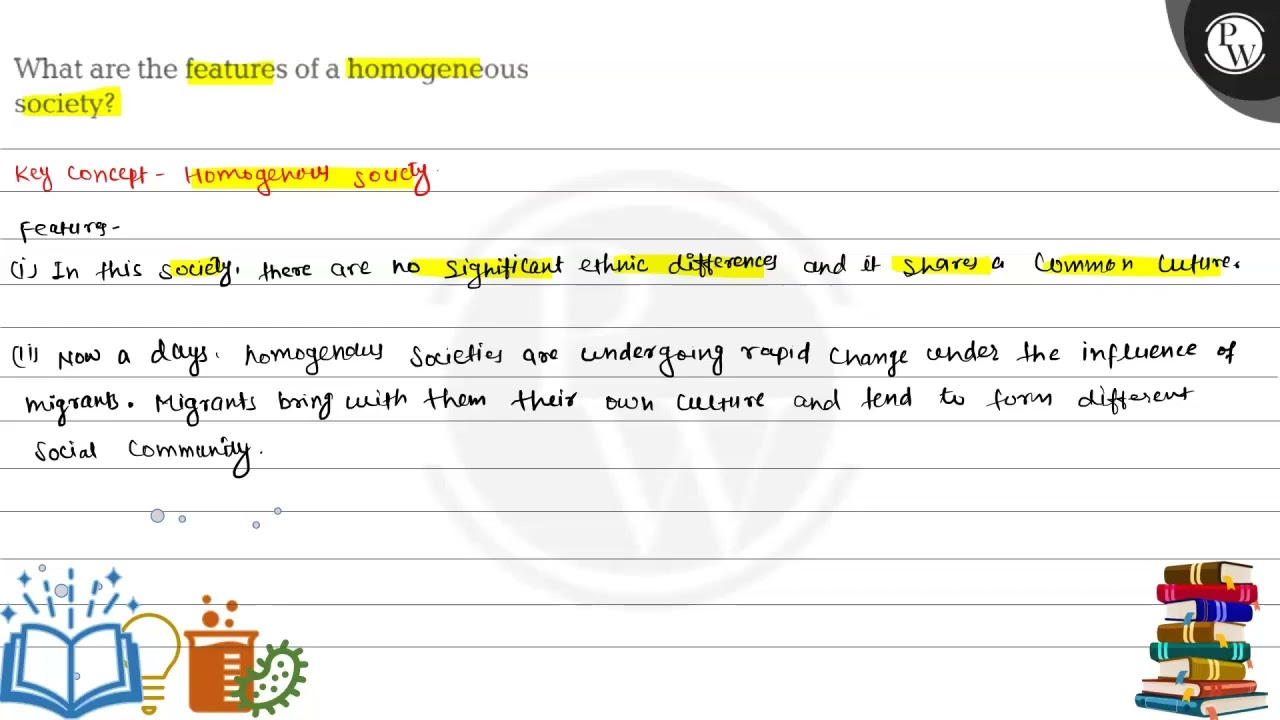 What are the features of a homogeneous
society?
Key Concept - Homogenous society.
Features -
(i) In this society, there are no significant ethnic differences and it shares a common cuture.
(ii) Now a days, homogenous societies are undergoing rapid change under the influence of
migrants. Migrants bring with them their own culture and tend to form different
social community.
PW
PW